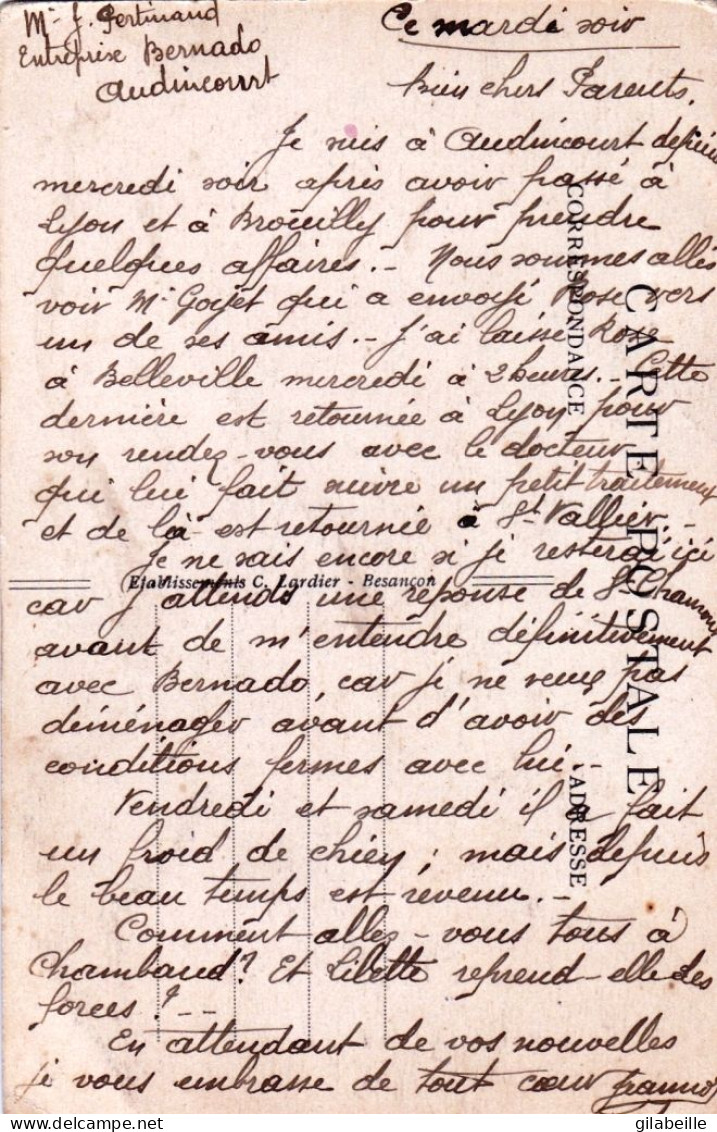 Mr J. Ferdinand
Entreprise Bernado
Audincourt
Ce mardi soir
Bien chers Parents,
Je suis à Audincourt depuis
mercredi soir après avoir passé à
Lyon et à Brouilly pour prendre
quelques affaires.- Nous sommes allés
voir Mr Goyet qui a envoyé Rose vers
un de ses amis.- J'ai laissé Rose
à Belleville mercredi à 2 heures.- Cette
dernière est retournée à Lyon pour
son rendez-vous avec le docteur
qui lui fait suivre un petit traitement
et de là est retournée à St Vallier.-
Je ne sais encore si je resterai ici
car j'attends une réponse de St Chamond
avant de m'entendre définitivement
avec Bernado, car je ne veux pas
déménager avant d'avoir des
conditions fermes avec lui.-
Vendredi et samedi il a fait
un froid de chien ; mais depuis
le beau temps est revenu.-
Comment allez-vous tous à
Chambaud? Et Lilette reprend-elle des
forces? --
En attendant de vos nouvelles
je vous embrasse de tout cœur
CARTE POSTALE
CORRESPONDANCE
ADRESSE
Etablissements C. Lardier - Besançon
gilabeille